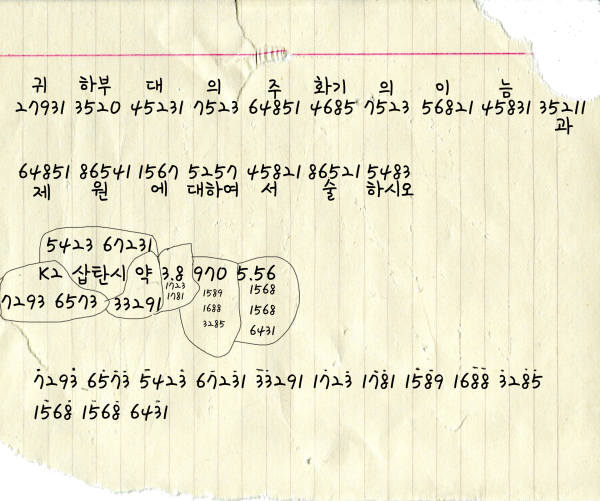 귀 하부 대 의 주 화기 의 이 늠
27931 3520 45231 7523 64851 4685 7523 56821 45831 35211
과
64851 86541 1567 5257 45821 86521 5483
제 원 에 대하여 서 술 하시오
5423 67231
K2 삽탄시 약 3.8 970 5.56
1723 1589 1568
7293 6573 33291 1781 1688 1568
3285 6431
7293 6573 5423 67231 33291 1723 1781 1589 1688 3285
1568 1568 6431